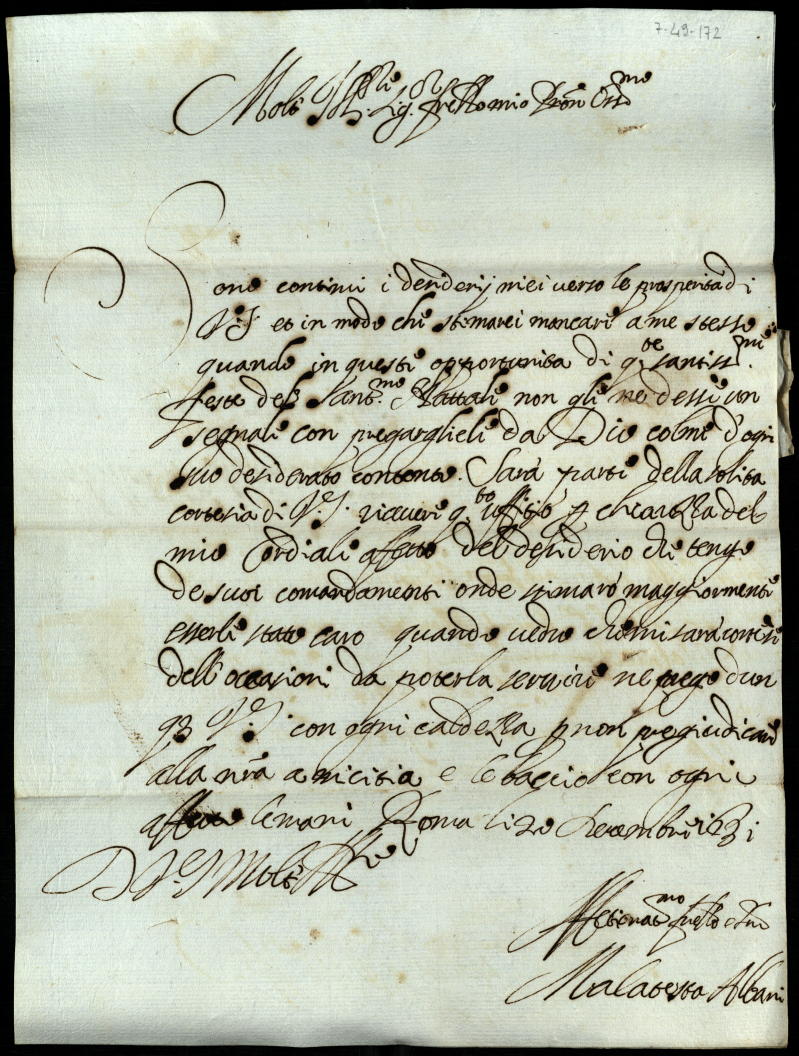 7-49-172
Molt Ill.re Sig.or fratello mio Pron Oss.mo
Sono continui i deriderij miei verso le prosperità di
V.S. et in modo che stimarei mancare a me stesso
quando in queste opportunita di q.te santiss.me
feste del Sant.mo Nattale non gli ne dessi un
segnale con pregarglieli da Dio colme d'ogni
suo desiderato contento. Sarà parte della solita
cortesia di V.S. ricevere q.to uffitio p chiarezza del
mio Cordiale affetto del desiderio che tengo
de suoi comandamenti onde stimarò maggiormente
esserle stato caro quando vedrò che mi sarà cortese
dell'occasioni da poterla servire ne prego dun
q3 V.S. con ogni caldezza p non pregiudicare
alla nrã amicitia e le baccio con ogni
affetto le mani Roma li 20 Decembre 1631
D V.S. Molt Ill.re
Affetionat.mo fratello e Ser
Malatesta Albani